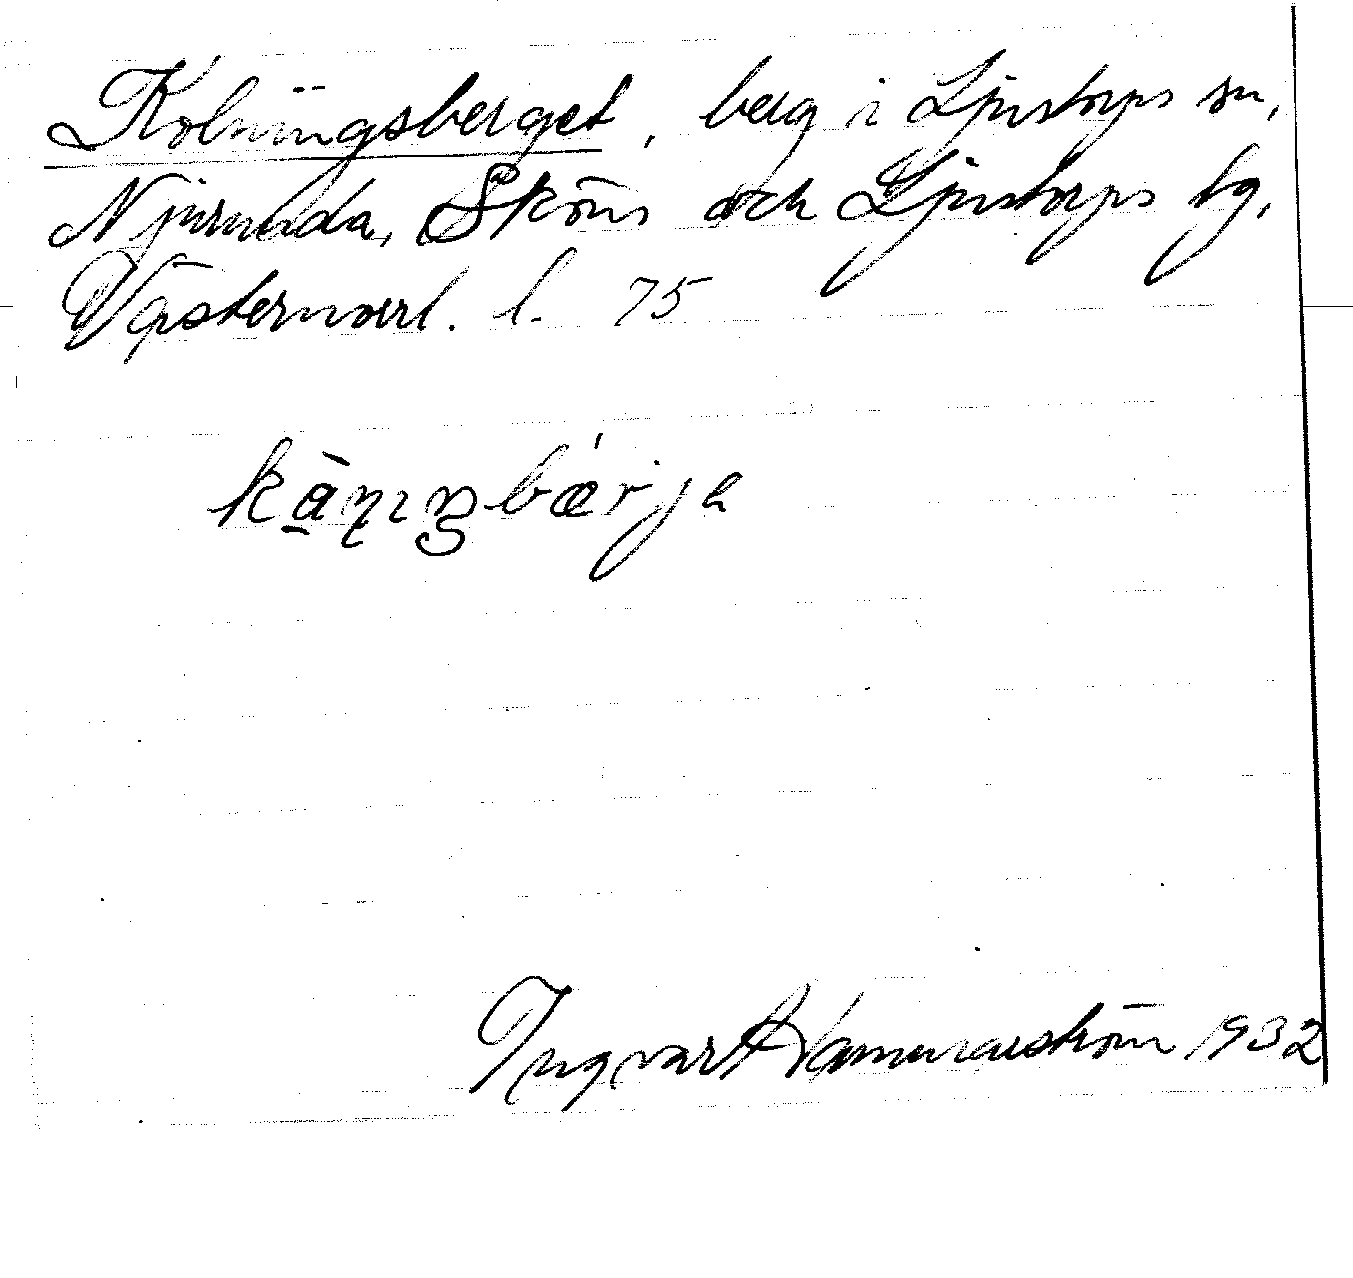 Kolningsberget, berg i Ljustorps sn,
Njurunda, Sköns och Ljustorps tg,
Västernorrl. l. 75
Ingvar Hammarström 1932